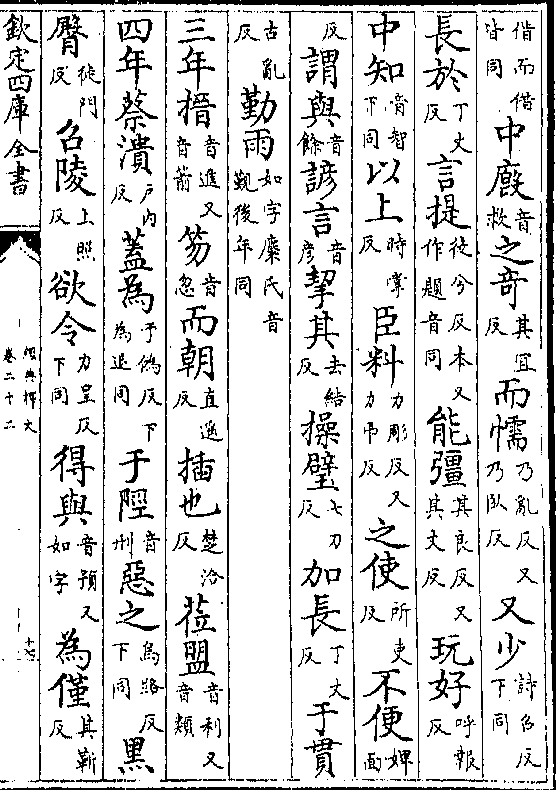 偕而偕皆同中廄音救之奇其宜反而懦乃亂反又乃臥反又少詩召反下同
長於丁丈反言提徒兮反本又作題音同能彊其良反又其丈反玩好呼報反
中知音智下同以上時掌反臣料力彫反又力弔反之使所吏反不便婢面
反謂與音餘諺言音彥挈其去結反操璧七刀反加長丁丈反于貫
古亂反勤雨如字麋氏音覲後年同
三年搢音進又音箭笏音忽而朝直遥反插也楚洽反莅盟音利又音類
四年蔡潰戶内反蓋為于偽反下為退同于陘音刑惡之烏路反下同黑
臀徒門反召陵上照反欲令力呈反下同得與音預又如字為僅其靳反
欽定四庫全書
經典釋文
卷二十二
十七